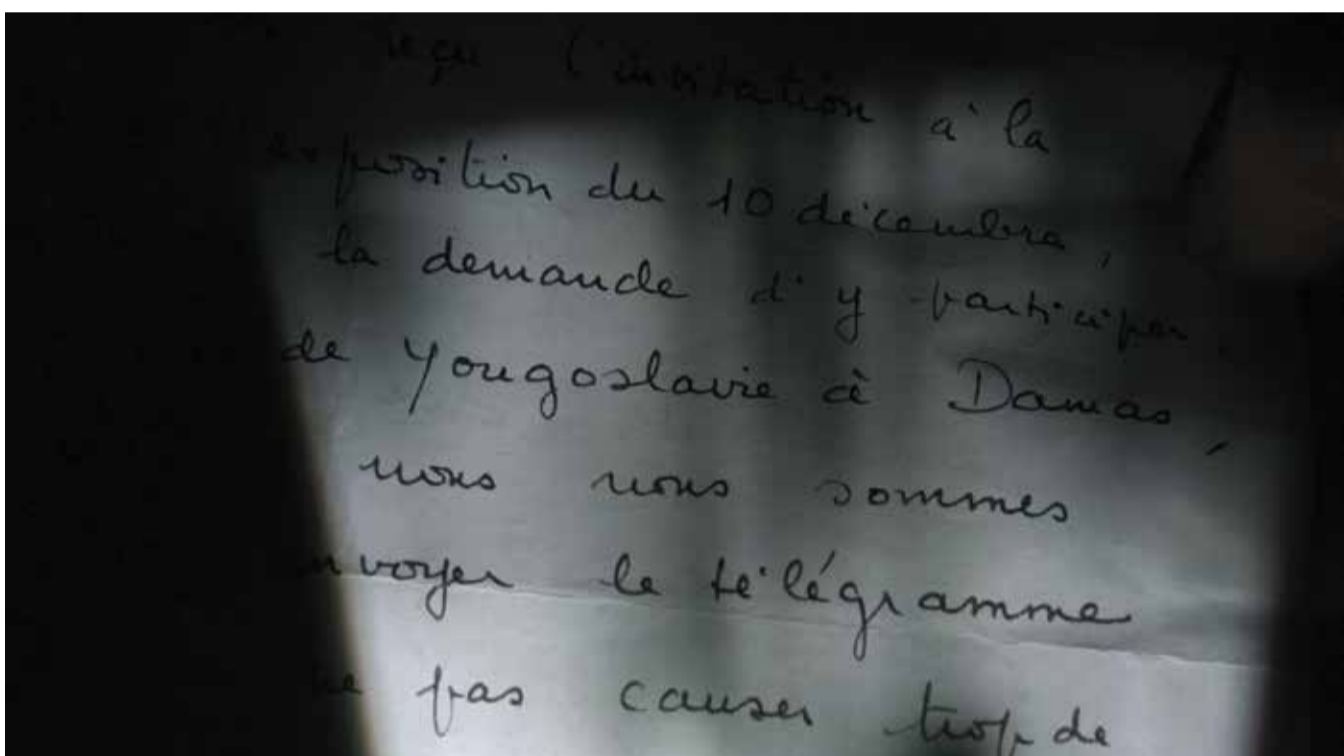 reçu l'invitation à la
exposition du 10 décembre,
la demande d'y participer
de Yougoslavie à Damas,
nous nous sommes
nvoyer le télégramme
ne pas causer trop de